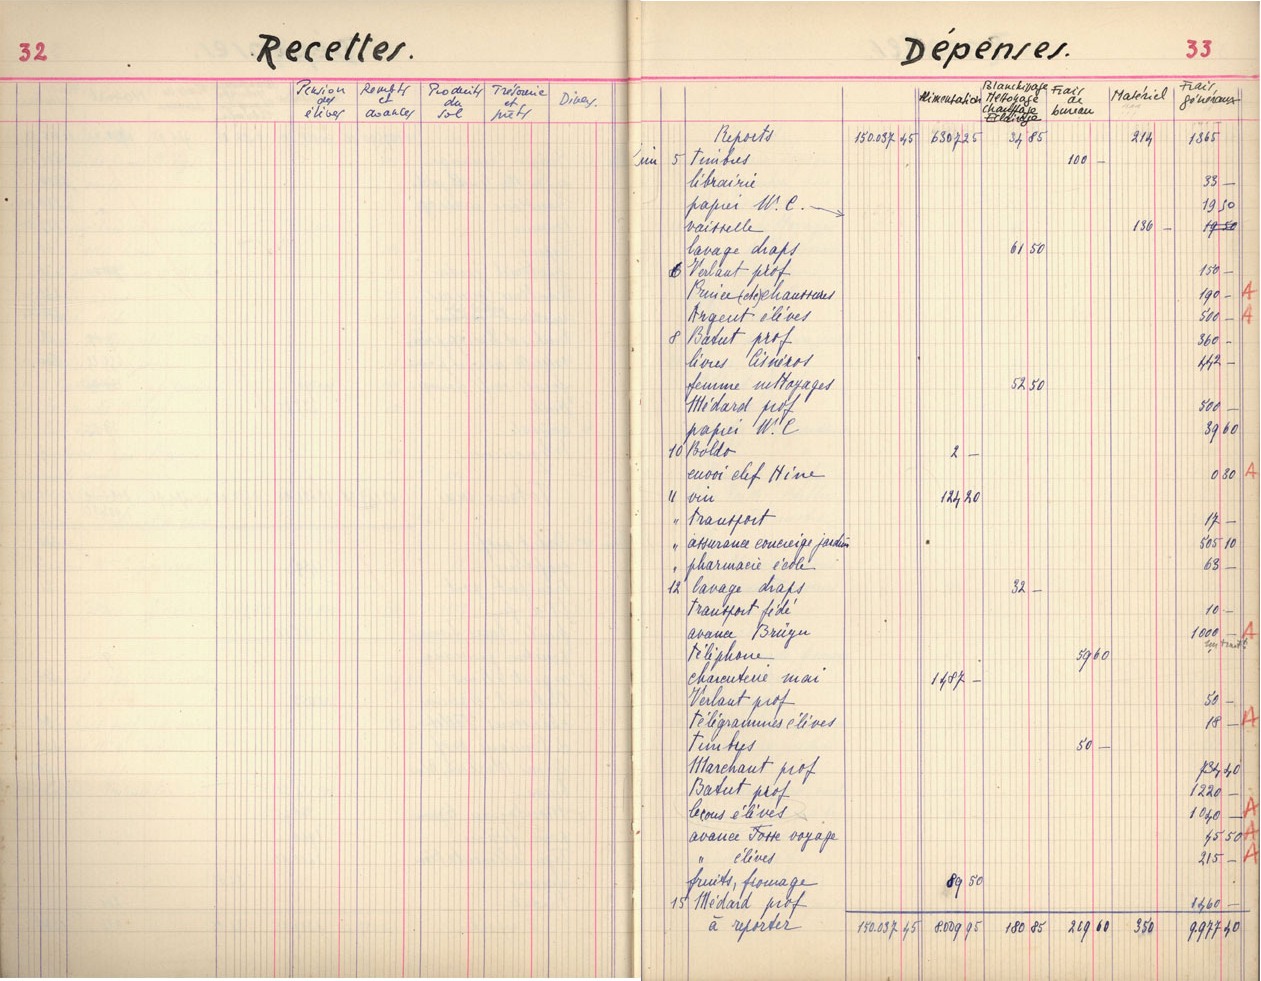 32
Recettes.
Pension des élèves
Rembts et avances
Produits du sol
Trésorerie et prêts
Divers.
Dépenses.
33
Alimentation
Blanchissage Nettoyage Chauffage Eclairage
Frais de bureau
Matériel
Frais généraux
Reports 150.037 45 6307 25 34 85 214 1365
5 timbres 100 —
librairie 33 —
papier W.C. 19 50
vaisselle 136 — 19 50
lavage draps 61 50
6 Verlaut prof 150 —
chaussures 190 — A
Argent élèves 500 — A
8 Batut prof 360 —
livres Cisnéros 442 —
femme nettoyages 52 50
Médard prof 500 —
papier W.C 39 60
10 Boldo 2 —
envoi clef Hine 0 80 A
11 vin 124 20
" transport 17 —
" assurance concierge jardin 505 10
" pharmacie école 63 —
12 lavage draps 32 —
transport fédé 10 —
avance Brügn 1000 — A
téléphone 59 60
charcuterie mai 1487 —
Verlaut prof 50 —
télégrammes élèves 18 — A
timbres 50 —
Marchaut prof 734 40
Batut prof 1220 —
leçons élèves 1040 — A
avance Fosse voyage 45 50 A
" élèves 215 — A
fruits, fromage 89 50
15 Médard prof 1460 —
à reporter 150.037 45 8.009 95 180 85 209 60 350 9.977 40